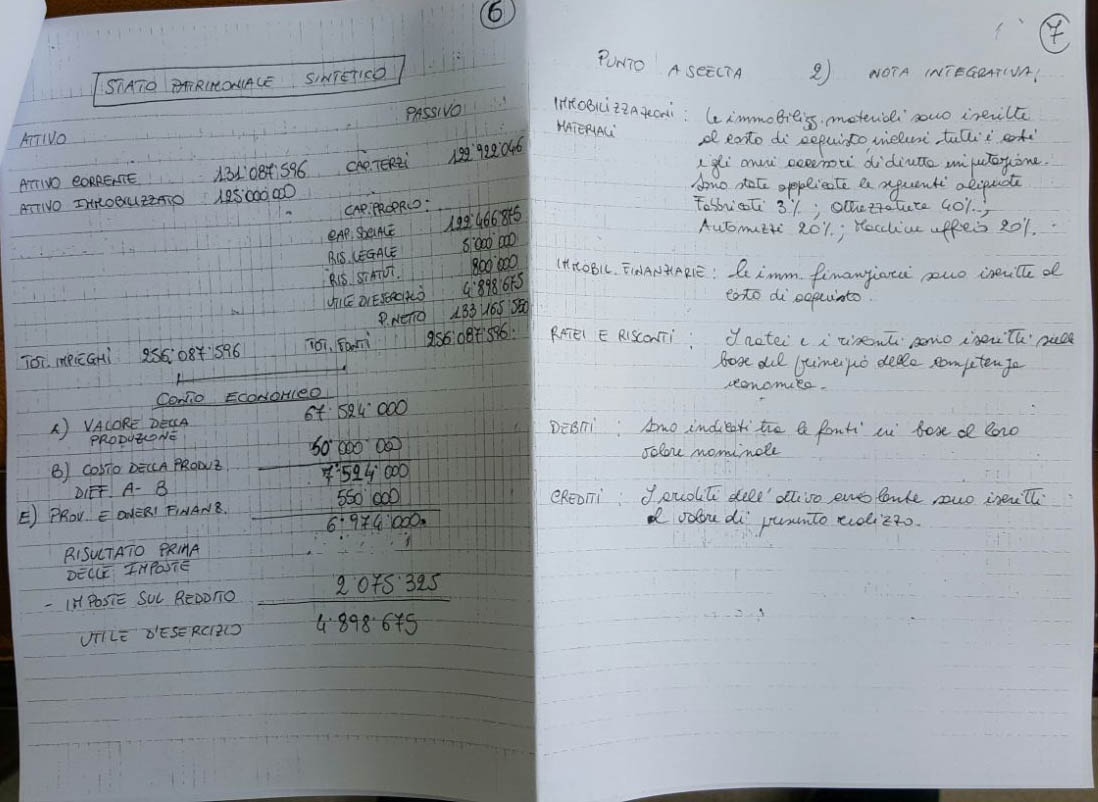 6
STATO PATRIMONIALE SINTETICO
ATTIVO PASSIVO
ATTIVO CORRENTE 131'087'596 CAP. TERZI 122'922'046
ATTIVO IMMOBILIZZATO : 125'000'000
CAP. PROPRIO :
CAP. SOCIALE 122'466'875
RIS. LEGALE 5'000'000
RIS. STATUT. 800'000
UTILE D'ESERCIZIO 4'898'675
P. NETTO 133'165'550
TOT. IMPIEGHI 256'087'596 TOT. FONTI 256'087'596
CONTO ECONOMICO
A) VALORE DELLA 67'524'000
PRODUZIONE
B) COSTO DELLA PRODUZ 60'000'000
DIFF. A-B 7'524'000
E) PROV. E ONERI FINANZ. 550'000
6'974'000
RISULTATO PRIMA
DELLE IMPOSTE
- IMPOSTE SUL REDDITO 2'075'325
UTILE D'ESERCIZIO 4'898'675
7
PUNTO A SCELTA 2) NOTA INTEGRATIVA
IMMOBILIZZAZIONI : le immobilizz. materiali sono iscritte
MATERIALI al costo di acquisto inclusi tutti i costi
e gli oneri accessori di diretta imputazione.
Sono state applicate le seguenti aliquote
Fabbricati 3% ; Attrezzature 40% ;
Automezzi 20% ; Macchine ufficio 20% .
IMMOBIL. FINANZIARIE : le imm. finanziarie sono iscritte al
costo di acquisto .
RATEI E RISCONTI : I ratei e i risconti sono iscritti sulla
base del principio della competenza
economica .
DEBITI : Sono indicati tra le fonti in base al loro
valore nominale
CREDITI : I crediti dell'attivo circolante sono iscritti
al valore di presunto realizzo .